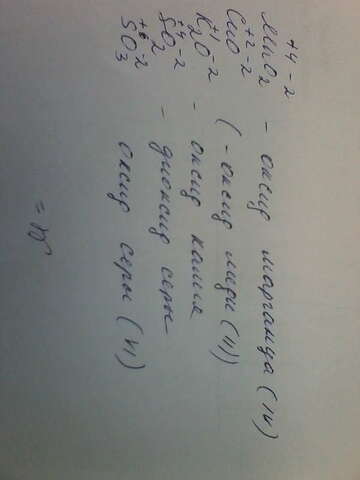 +4 -2
MnO2 - оксид марганца (IV)
+2 -2
CuO (- оксид меди (II))
+1 -2
K2O - оксид калия
+4 -2
SO2 - диоксид серы
+6 -2
SO3 оксид серы (VI)